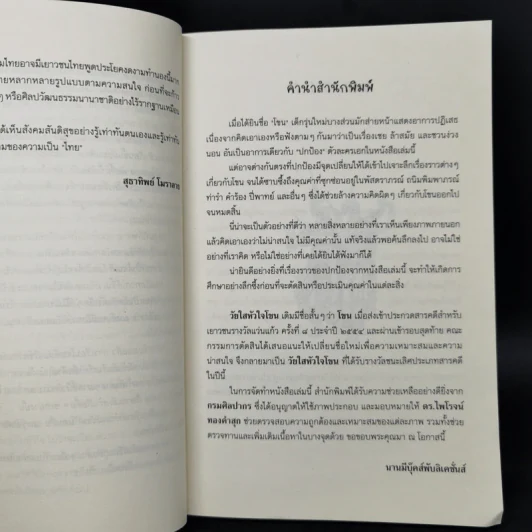 มไทยอาจมีเยาวชนไทยพูดประโยคงดงามทำนองนี้มาก
ายหลากหลายรูปแบบตามความสนใจ ก่อนที่จะก้าว
ๆ หรือศิลปวัฒนธรรมนานาชาติอย่างไร้รากฐานเหมือน
ด้เห็นสังคมสันติสุขอย่างรู้เท่าทันตนเองและรู้เท่าทัน
มของความเป็น "ไทย"
สุธาทิพย์
คำนำสำนักพิมพ์
เมื่อได้ยินชื่อ 'โขน' เด็กรุ่นใหม่บางส่วนมักส่ายหน้าแสดงอาการปฏิเสธ
เนื่องจากคิดเอาเองหรือฟังตามๆ กันมาว่าเป็นเรื่องเชย ล้าสมัย และชวนง่วง
นอน อันเป็นอาการเดียวกับ "ปกป้อง" ตัวละครเอกในหนังสือเล่มนี้
แต่อาจต่างกันตรงที่ปกป้องมีจุดเปลี่ยนให้ได้เข้าไปเจาะลึกเรื่องราวต่างๆ
เกี่ยวกับโขน จนได้ซาบซึ้งถึงคุณค่าที่ซุกซ่อนอยู่ในพัสตราภรณ์ ถนิมพิมพาภรณ์
ท่ารำ คำร้อง ปี่พาทย์ และอื่นๆ ซึ่งได้ช่วยล้างความคิดผิดๆ เกี่ยวกับโขนออกไป
จนหมดสิ้น
นี่น่าจะเป็นตัวอย่างที่ดีว่า หลายสิ่งหลายอย่างที่เราเห็นเพียงภาพภายนอก
แล้วคิดเอาเองว่าไม่น่าสนใจ ไม่มีคุณค่านั้น แท้จริงแล้วพอค้นลึกลงไป อาจไม่ใช่
อย่างที่เราคิด หรือไม่ใช่อย่างที่เคยได้ยินได้ฟังมาก็ได้
น่ายินดีอย่างยิ่งที่เรื่องราวของปกป้องจากหนังสือเล่มนี้ จะทำให้เกิดการ
ศึกษาอย่างลึกซึ้งก่อนที่จะตัดสินหรือประเมินคุณค่าในแต่ละสิ่ง
วัยใสหัวใจโขน เดิมมีชื่อสั้นๆ ว่า โขน เมื่อส่งเข้าประกวดสารคดีสำหรับ
เยาวชนรางวัลแว่นแก้ว ครั้งที่ ๘ ประจำปี ๒๕๕๔ และผ่านเข้ารอบสุดท้าย คณะ
กรรมการตัดสินได้เสนอแนะให้เปลี่ยนชื่อใหม่เพื่อความเหมาะสมและความ
น่าสนใจ จึงกลายมาเป็น วัยใสหัวใจโขน ที่ได้รับรางวัลชนะเลิศประเภทสารคดี
ในปีนี้
ในการจัดทำหนังสือเล่มนี้ สำนักพิมพ์ได้รับความช่วยเหลืออย่างดียิ่งจาก
กรมศิลปากร ซึ่งได้อนุญาตให้ใช้ภาพประกอบ และมอบหมายให้ ดร.ไพโรจน์
ทองคำสุก ช่วยตรวจสอบความถูกต้องและเหมาะสมของแต่ละภาพ รวมทั้งช่วย
ตรวจทานและเพิ่มเติมเนื้อหาในบางจุดด้วย ขอขอบพระคุณมา ณ โอกาสนี้
นานมีบุ๊คส์พับลิเคชั่นส์